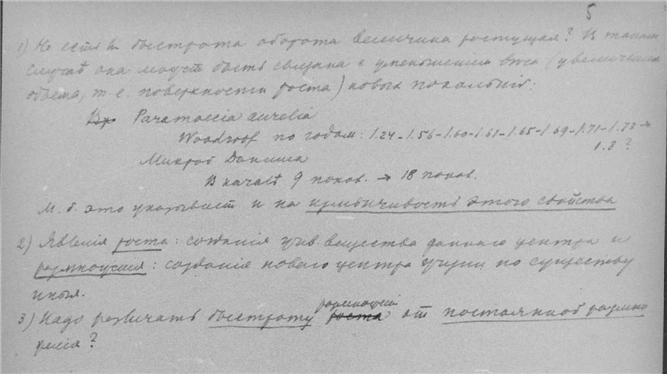 5
1) Не есть ли быстрота оборота величина ростущая? В таком
случаѣ она может быть связана с уменьшением вѣса (увеличением
объема, т.е. поверхности роста) новых поколѣній:
Paramaecia aurelia
Woodroof по годам: 1.24 – 1.56 – 1.60 – 1.61 – 1.65 – 1.69 – 1.71 – 1.78 →
1.8?
Микроб Даниша
В началѣ 9 покол. → 18 покол.
М. б. это указывает и на измѣнчивость этого свойства
2) Явленія роста: созданія живого вещества даннаго центра и
размноженія: созданія новаго центра жизни по существу
иныя.
размноженія
3) Надо различать быстроту роста от постоянной размно
женія?